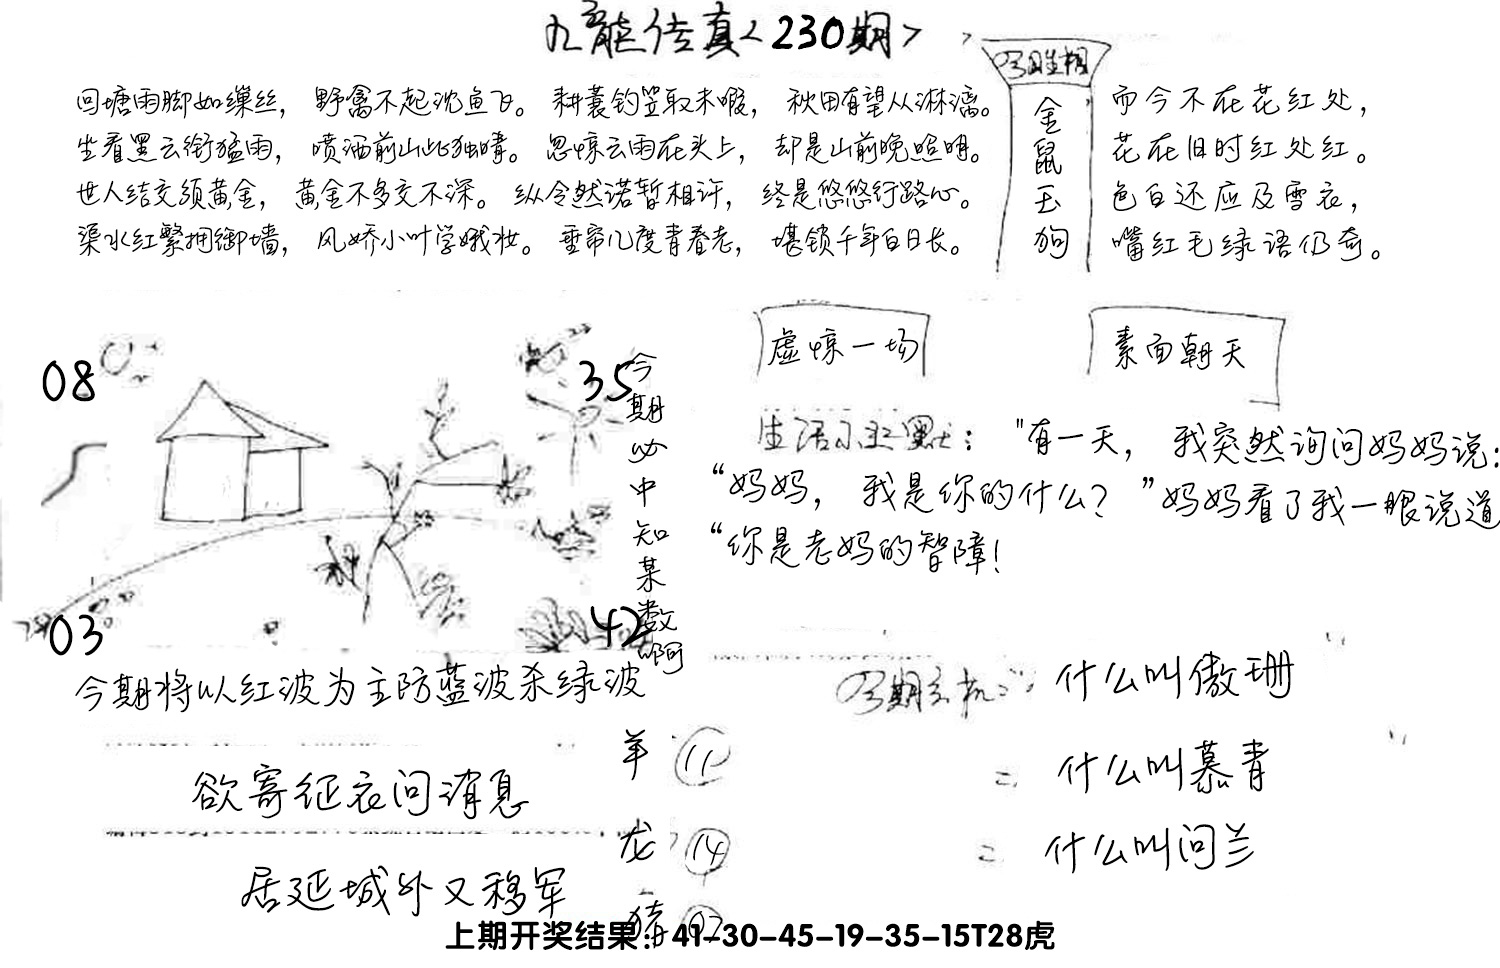 九龍传真<230期>
回塘雨脚如缫丝，野禽不起沈鱼飞。耕蓑钓笠取未暇，秋田有望从淋漓。
坐看黑云衔猛雨，喷洒前山此独晴。忽惊云雨在头上，却是山前晚照明。
世人结交须黄金，黄金不多交不深。纵令然诺暂相许，终是悠悠行路心。
渠水红繁拥御墙，风娇小叶学娥妆。垂帘几度青春老，堪锁千年白日长。
今日生相
金鼠玉狗
而今不在花红处，
花在旧时红处红。
色白还应及雪衣，
嘴红毛绿语仍奇。
08
35
03
42
今期必中知某数啊
虚惊一场
素面朝天
生活小幽默："有一天，我突然询问妈妈说：
“妈妈，我是你的什么？”妈妈看了我一眼说道
“你是老妈的智障！
今期将以红波为主防蓝波杀绿波
欲寄征衣问消息
居延城外又移军
羊 11
龙 14
猪 02
今期玄机：什么叫傲珊
= 什么叫慕青
= 什么叫问兰
上期开奖结果：41-30-45-19-35-15T28虎